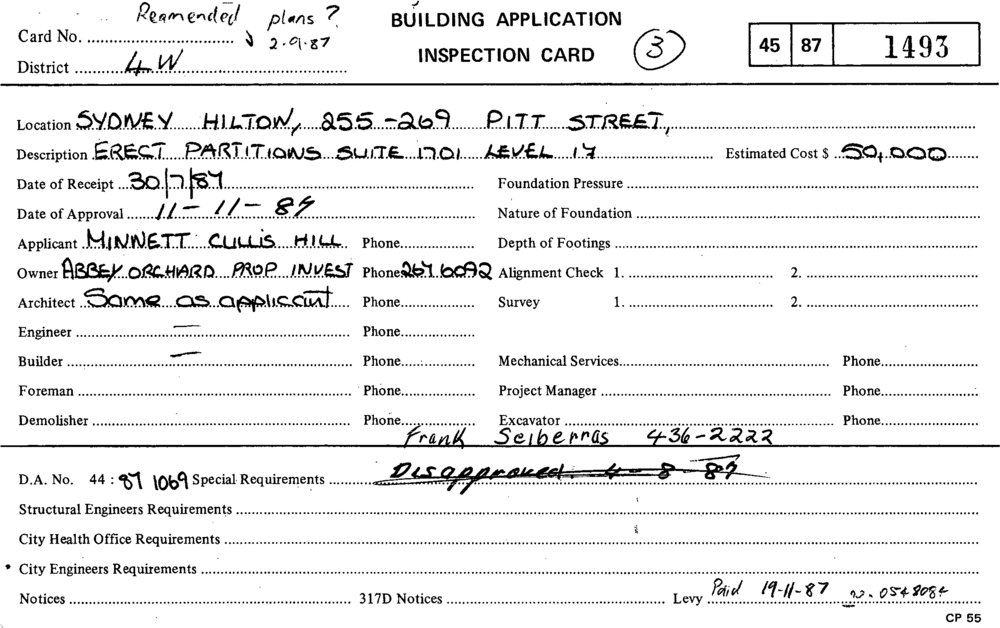 Reamended plans ?
Card No. 2.9.87
BUILDING APPLICATION
INSPECTION CARD
3
45 87 1493
District 4W
Location SYDNEY HILTON, 255-269 PITT STREET,
Description ERECT PARTITIONS SUITE 1701 LEVEL 17 Estimated Cost $ 50,000
Date of Receipt 30/7/87 Foundation Pressure
Date of Approval 11-11-87 Nature of Foundation
Applicant MINNETT CULLIS HILL Phone Depth of Footings
Owner ABBEY ORCHARD PROP INVEST Phone 267.6092 Alignment Check 1. 2.
Architect Same as applicant Phone Survey 1. 2.
Engineer — Phone
Builder — Phone Mechanical Services Phone
Foreman Phone Project Manager Phone
Demolisher Phone Excavator Phone
Frank Seiberras 436-2222
D.A. No. 44 : 87 1069 Special Requirements Disapproved. 4-8-87
Structural Engineers Requirements
City Health Office Requirements
• City Engineers Requirements
Notices 317D Notices Levy Paid 19-11-87 no. 0548084
CP 55